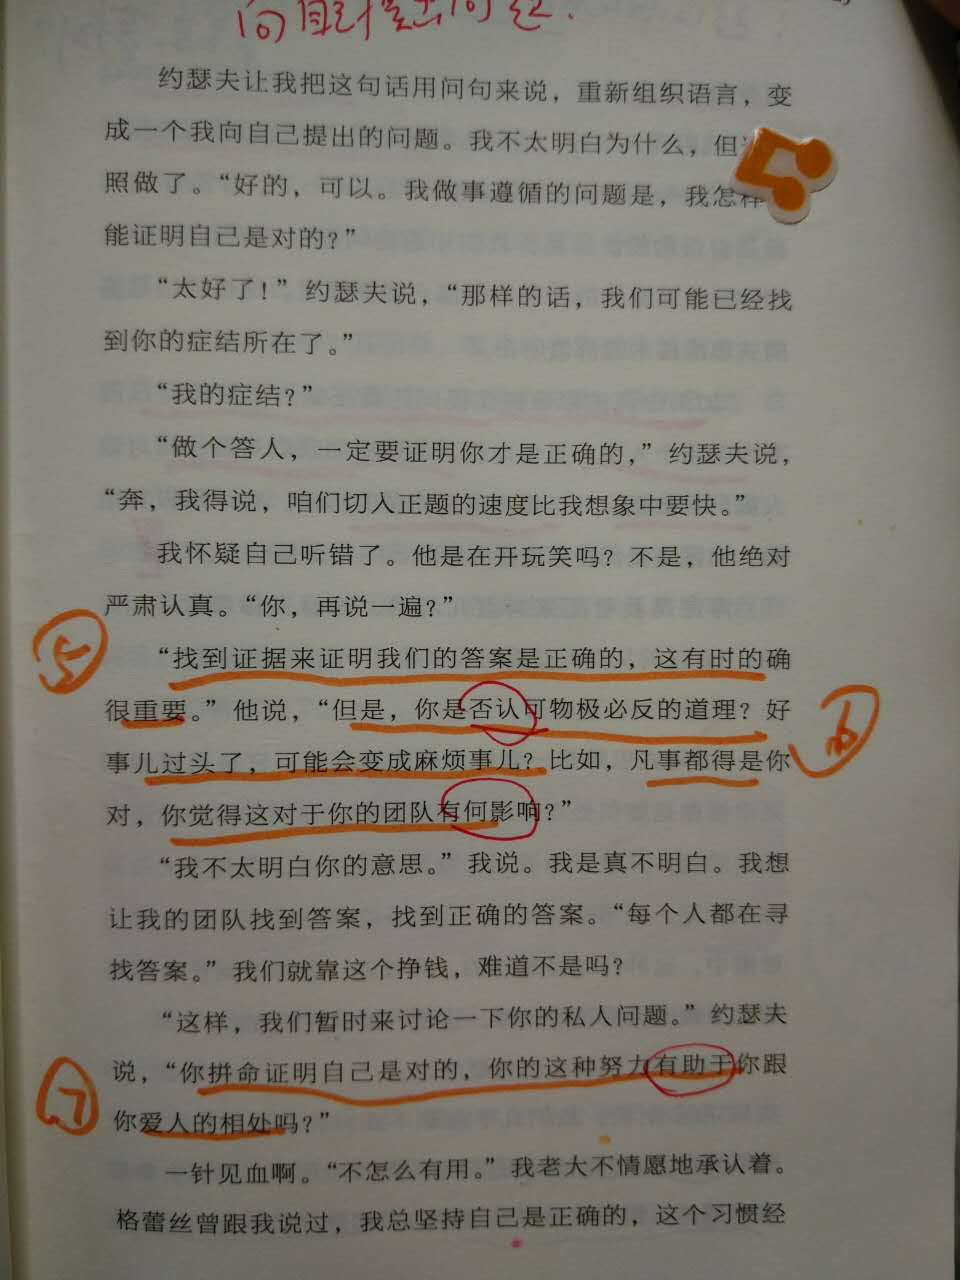 向自己提出问题.
约瑟夫让我把这句话用问句来说，重新组织语言，变
成一个我向自己提出的问题。我不太明白为什么，但
照做了。“好的，可以。我做事遵循的问题是，我怎样
能证明自己是对的？”
“太好了！”约瑟夫说，“那样的话，我们可能已经找
到你的症结所在了。”
“我的症结？”
“做个答人，一定要证明你才是正确的，”约瑟夫说，
“奔，我得说，咱们切入正题的速度比我想象中要快。”
我怀疑自己听错了。他是在开玩笑吗？不是，他绝对
严肃认真。“你，再说一遍？”
5
“找到证据来证明我们的答案是正确的，这有时的确
很重要。”他说，“但是，你是否认可物极必反的道理？好
事儿过头了，可能会变成麻烦事儿？比如，凡事都得是你
对，你觉得这对于你的团队有何影响？”
“我不太明白你的意思。”我说。我是真不明白。我想
让我的团队找到答案，找到正确的答案。“每个人都在寻
找答案。”我们就靠这个挣钱，难道不是吗？
“这样，我们暂时来讨论一下你的私人问题。”约瑟夫
说，“你拼命证明自己是对的，你的这种努力有助于你跟
7
你爱人的相处吗？”
一针见血啊。“不怎么有用。”我老大不情愿地承认着。
格蕾丝曾跟我说过，我总坚持自己是正确的，这个习惯经